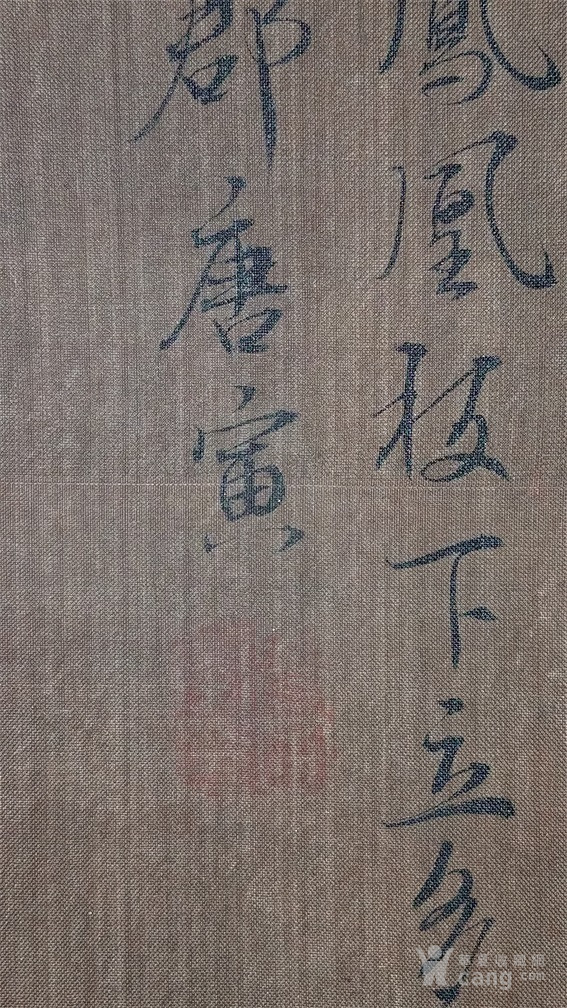 鳳凰枝下立多
郡唐寅
cang.com